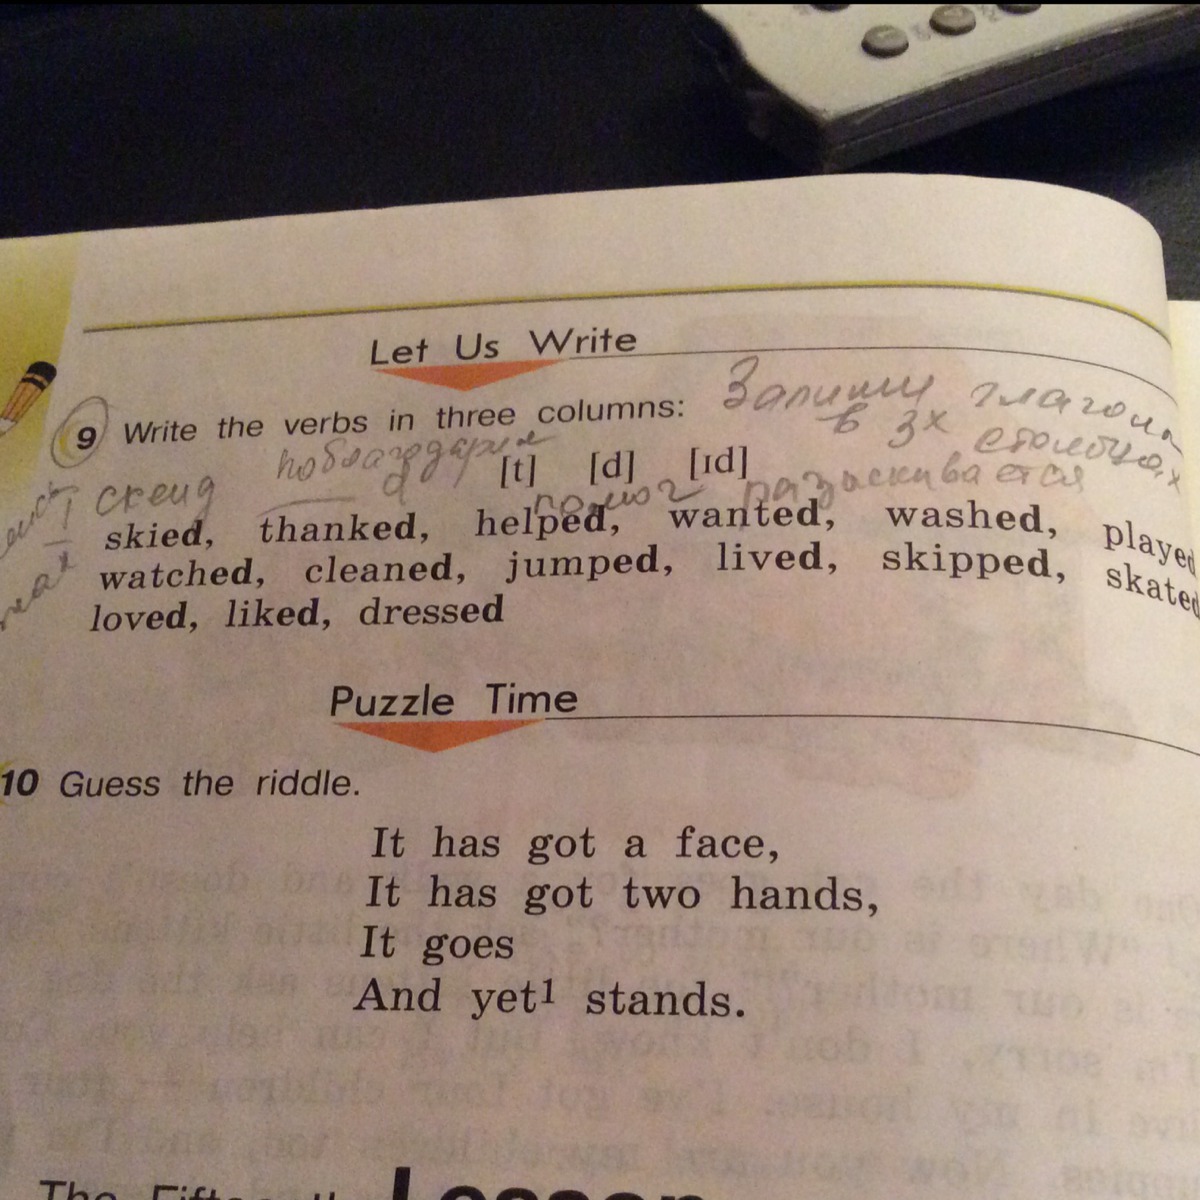 Let Us Write
9 Write the verbs in three columns: Запиши глагола
в 3х столбцах
[t] [d] [ɪd]
скеид
помог
skied, thanked, helped, wanted, washed, played
watched, cleaned, jumped, lived, skipped, skated
loved, liked, dressed
Puzzle Time
10 Guess the riddle.
It has got a face,
It has got two hands,
It goes
And yet1 stands.
The